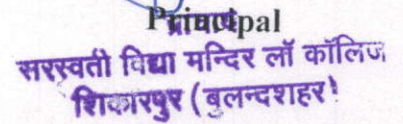 Principal
प्राचार्य
सरस्वती विद्या मन्दिर लॉ कॉलिज
शिकारपुर (बुलन्दशहर)